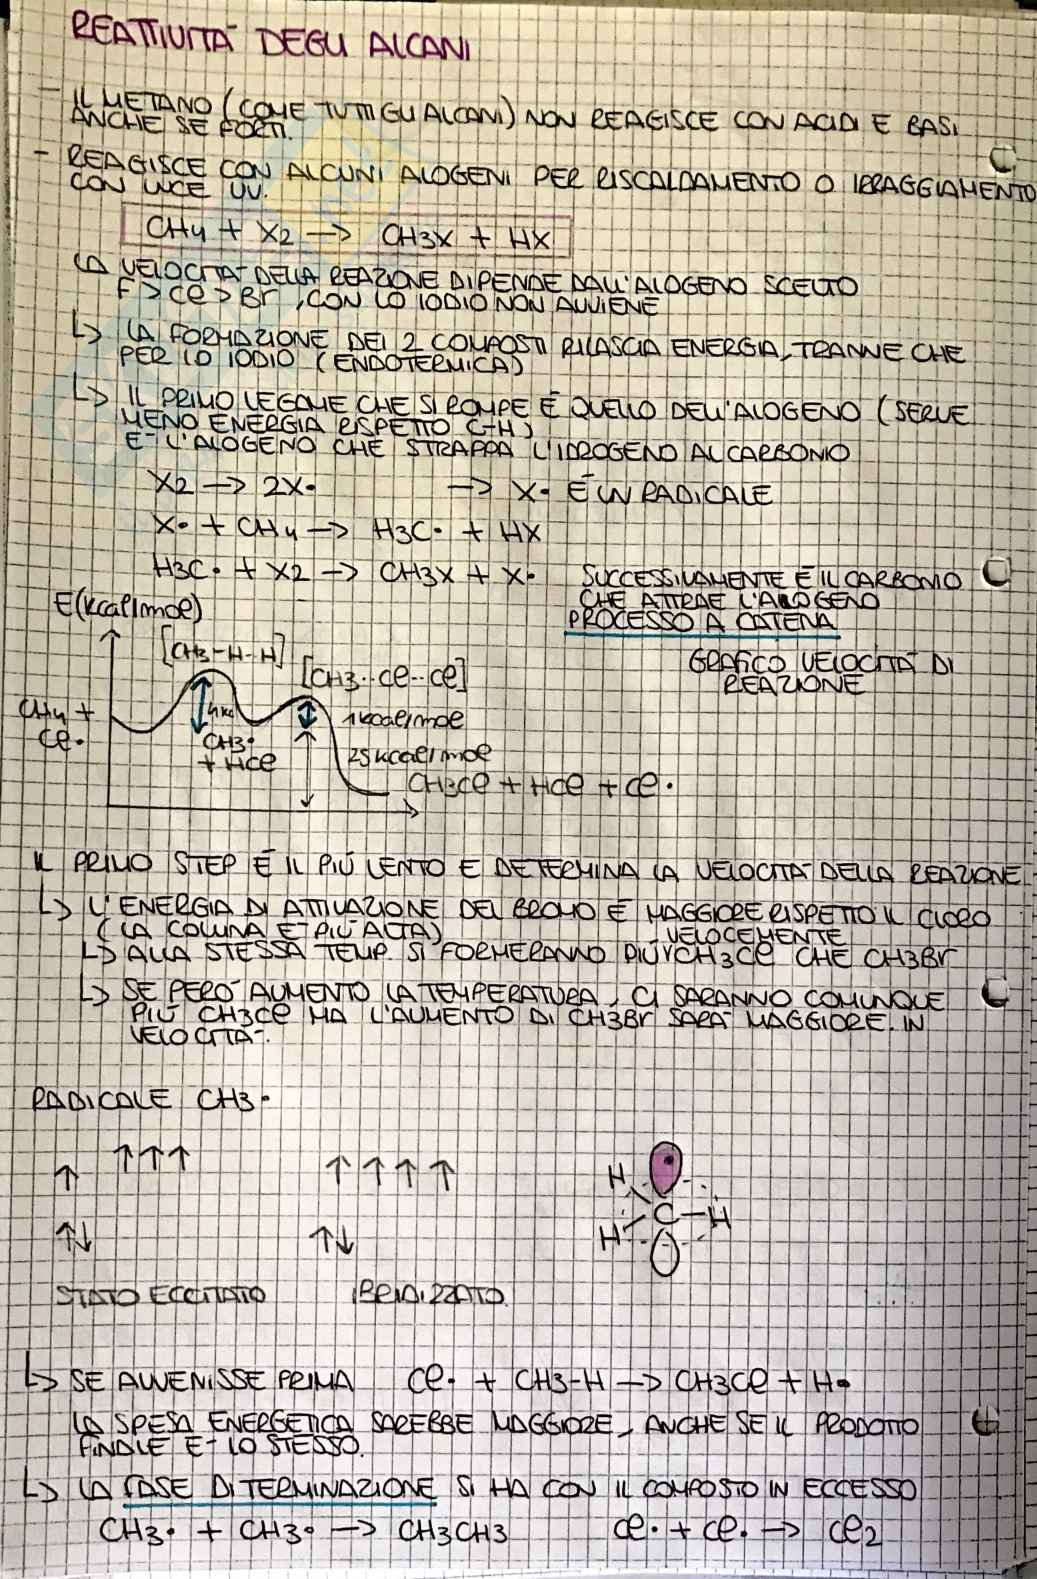 REATTIVITÀ DEGLI ALCANI
- IL METANO (COME TUTTI GLI ALCANI) NON REAGISCE CON ACIDI E BASI
ANCHE SE FORTI.
- REAGISCE CON ALCUNI ALOGENI PER RISCALDAMENTO O IRRAGGIAMENTO
CON LUCE UV.
CH4 + X2 → CH3X + HX
LA VELOCITÀ DELLA REAZIONE DIPENDE DALL'ALOGENO SCELTO
F > Cl > Br, CON LO IODIO NON AVVIENE
↳ LA FORMAZIONE DEI 2 COMPOSTI RILASCIA ENERGIA, TRANNE CHE
PER LO IODIO (ENDOTERMICA)
↳ IL PRIMO LEGAME CHE SI ROMPE È QUELLO DELL'ALOGENO (SERVE
MENO ENERGIA RISPETTO C-H)
È L'ALOGENO CHE STRAPPA L'IDROGENO AL CARBONIO
X2 → 2X• → X• È UN RADICALE
X• + CH4 → H3C• + HX
H3C• + X2 → CH3X + X• SUCCESSIVAMENTE È IL CARBONIO
CHE ATTRAE L'ALOGENO
PROCESSO A CATENA
E(kcal/mol)
[CH3-H-H]
GRAFICO VELOCITÀ DI
REAZIONE
[CH3··Cl··Cl]
CH4 +
Cl•
4kc
1kcal/mol
CH3•
+ HCl
25kcal/mol
CH3Cl + HCl + Cl•
IL PRIMO STEP È IL PIÙ LENTO E DETERMINA LA VELOCITÀ DELLA REAZIONE
↳ L'ENERGIA DI ATTIVAZIONE DEL BROMO È MAGGIORE RISPETTO IL CLORO
(LA COLLINA È PIÙ ALTA)
VELOCEMENTE
↳ ALLA STESSA TEMP. SI FORMERANNO PIÙ CH3Cl CHE CH3Br
↳ SE PERÒ AUMENTO LA TEMPERATURA, CI SARANNO COMUNQUE
PIÙ CH3Cl MA L'AUMENTO DI CH3Br SARÀ MAGGIORE IN
VELOCITÀ.
RADICALE CH3•
↑ ↑↑↑ ↑ ↑ ↑ ↑
↑↓ ↑↓
H
C-H
H
STATO ECCITATO IBRIDIZZATO
↳ SE AVVENISSE PRIMA Cl• + CH3-H → CH3Cl + H•
LA SPESA ENERGETICA SAREBBE MAGGIORE, ANCHE SE IL PRODOTTO
FINALE È LO STESSO.
↳ LA FASE DI TERMINAZIONE SI HA CON IL COMPOSTO IN ECCESSO
CH3• + CH3• → CH3CH3 Cl• + Cl• → Cl2